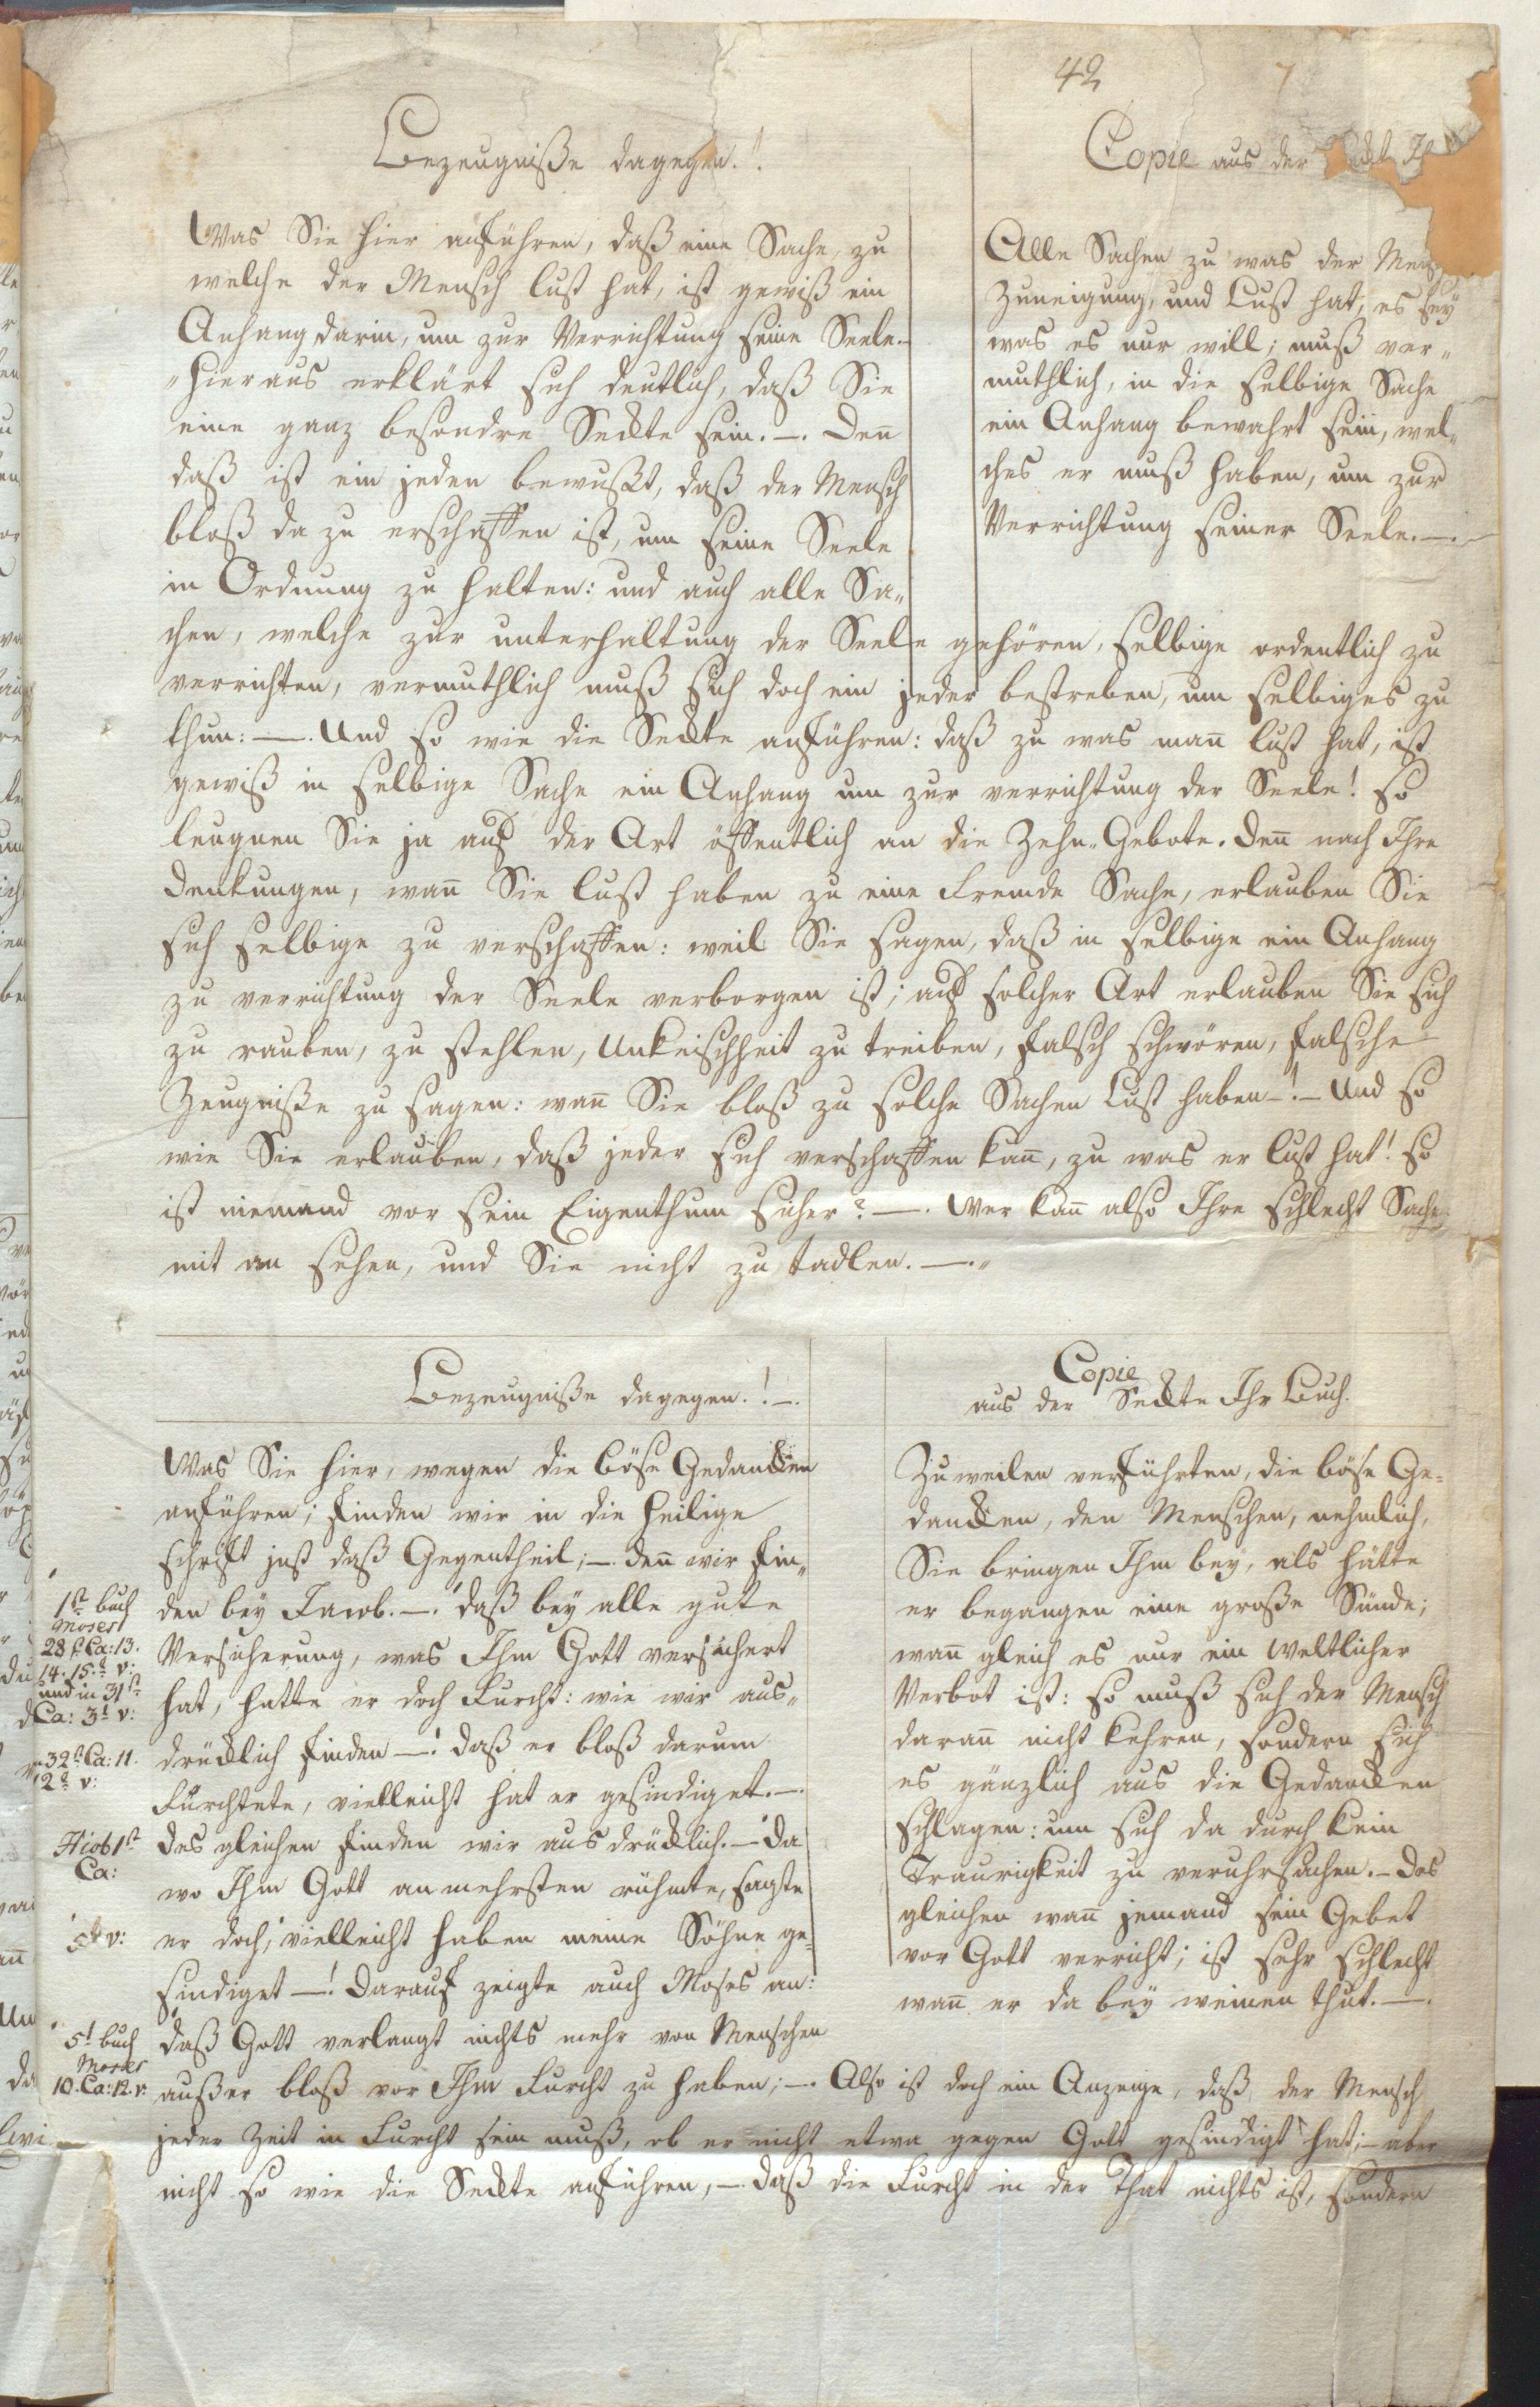 42
7
Bezeugniße dagegen.!
Was Sie hier anführen, daß eine Sache, zu
welche der Mensch lust hat, ist gewiß ein
Anhang darin, um zur Verrichtung seine Seele.–
"Hieraus erklärt sich deutlich, daß Sie
eine ganz besondre Seckte sein.–. Den̄
daß ist ein jeden bewußt, daß der Mensch
bloß da zu erschaffen ist, um seine Seele
in Ordnung zu halten: und auch alle Sa„
chen, welche zur unterhaltung der Seele gehören, selbige ordentlich zu
verrichten, vermuthlich muß sich doch ein jeder bestreben, um selbiges zu
thun:—. Und so wie die Seckte anführen: daß zu was man̄ lust hat, ist
gewiß in selbige Sache ein Anhang um zur verrichtung der Seele! so
leugnen Sie ja auf der Art öffentlich an die Zehn„Gebote. Den̄ nach Ihre
Denkungen, wan̄ Sie lust haben zu eine Fremde Sache, erlauben Sie
sich selbige zu verschaffen: weil Sie sagen, daß in selbige ein Anhang
zu verrichtung der Seele verborgen ist; auf solcher Art erlauben Sie sich
zu rauben, zu stehlen, Unkeischheit zu treiben, falsch schwören, falsche
Zeugniße zu sagen: wan̄ Sie bloß zu solche Sachen Lust haben–!– Und so
wie Sie erlauben, daß jeder sich verschaffen kan̄, zu was er lust hat! so
ist niemand vor sein Eigenthum sicher?—. Wer kan̄ also Ihre schlecht Sache
mit an sehen, und Sie nicht zu tadlen.—.„
Copie aus der
Alle Sachen zu was der
Zuneigung, und Lust hat, es sey
was es nur will; muß ver„
muthlich, in die selbige Sache
ein Anhang bewahrt sein, wel„
ches er muß haben, um zur
Verrichtung seiner Seele.—.
Bezeugniße dagegen.!–.
Was Sie hier, wegen die böse Gedancken
anführen; finden wir in die heilige
schrift just daß Gegentheil;–. den̄ wir fin„
den bey Jacob.–. daß bey alle gute
Versicherung, was Ihm Gott versichert
hat, hatte er doch Furcht: wie wir aus„
drücklich finden–! daß er bloß darum
Fürchtete, vielleicht hat er gesindiget.–.
des gleichen finden wir aus drücklich.– da
wo Ihm Gott an mehrsten rühmte, sagte
er doch, vielleicht haben meine Söhne ge„
sindiget–! Darauf zeigte auch Moses an:
daß Gott verlangt nichts mehr von Menschen
außer bloß vor Ihm Furcht zu haben;–. Also ist doch ein Anzeige, daß der Mensch
jeder Zeit in Furcht sein muß, ob er nicht etwa gegen Gott gesindigt hat;– aber
nicht so wie die Seckte anführen,–. daß die Furcht in der That nichts ist, sondern
1t buch
Moses
28t Ca: 13.
14. 15.t v:
und in 31t
Ca: 3t v:
32t Ca: 11.
12t v:
Hiob 1t
Ca:
5t v:
5t buch
Moses
10. Ca: 12. v:
Copie
aus der Seckte Ihr Buch.
Zuweilen verführten, die böse Ge„
dancken, den Menschen, nehmlich,
Sie bringen Ihm bey, als hätte
er begangen eine große Sünde;
wan̄ gleich es nur ein weltlicher
Verbot ist: so muß sich der Mensch
daran̄ nicht kehren, sondern sich
es gänzlich aus die Gedancken
schlagen: um sich da durch kein
Traurigkeit zu veruhrsachen.– Des
gleichen wan̄ jemand sein Gebet
vor Gott verricht; ist sehr schlecht
wan̄ er da bey weinen thut.—.